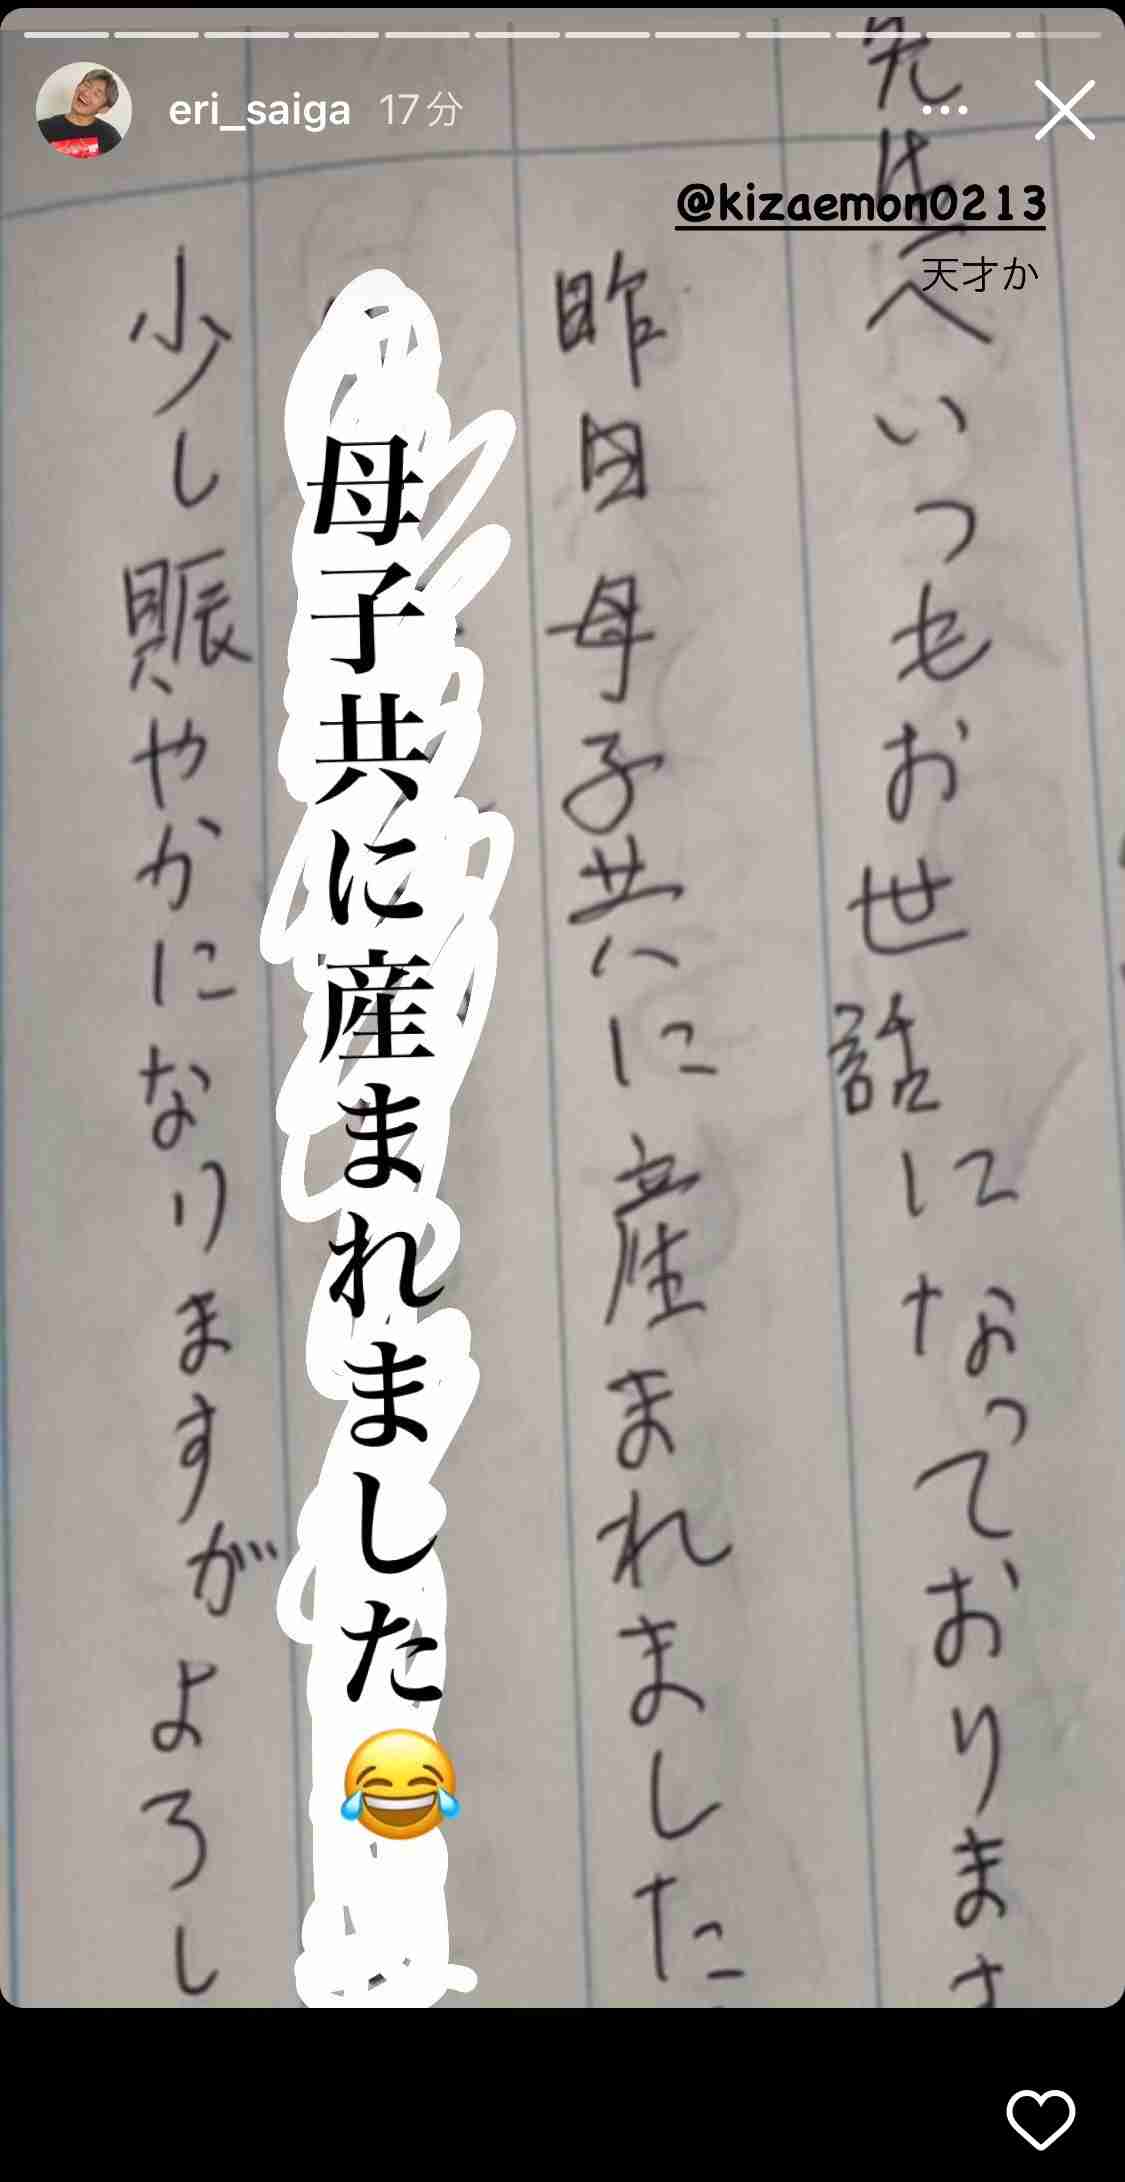 eri_saiga 17分
@kizaemon0213
天才か
いつもお世話になっておりま
昨日母子共に産まれました
母子共に産まれました😂
少し賑やかになりますがよろし